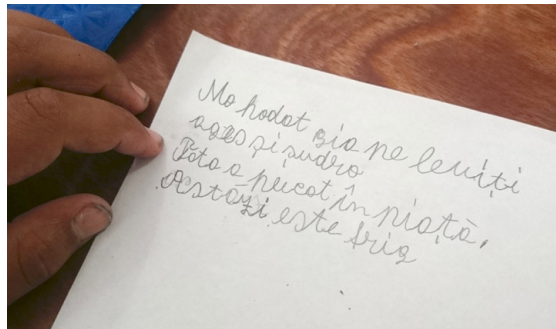 Mo hodot zia pe leuiți
ages și sudro
Tota a pucat în piață,
Astăzi este frig